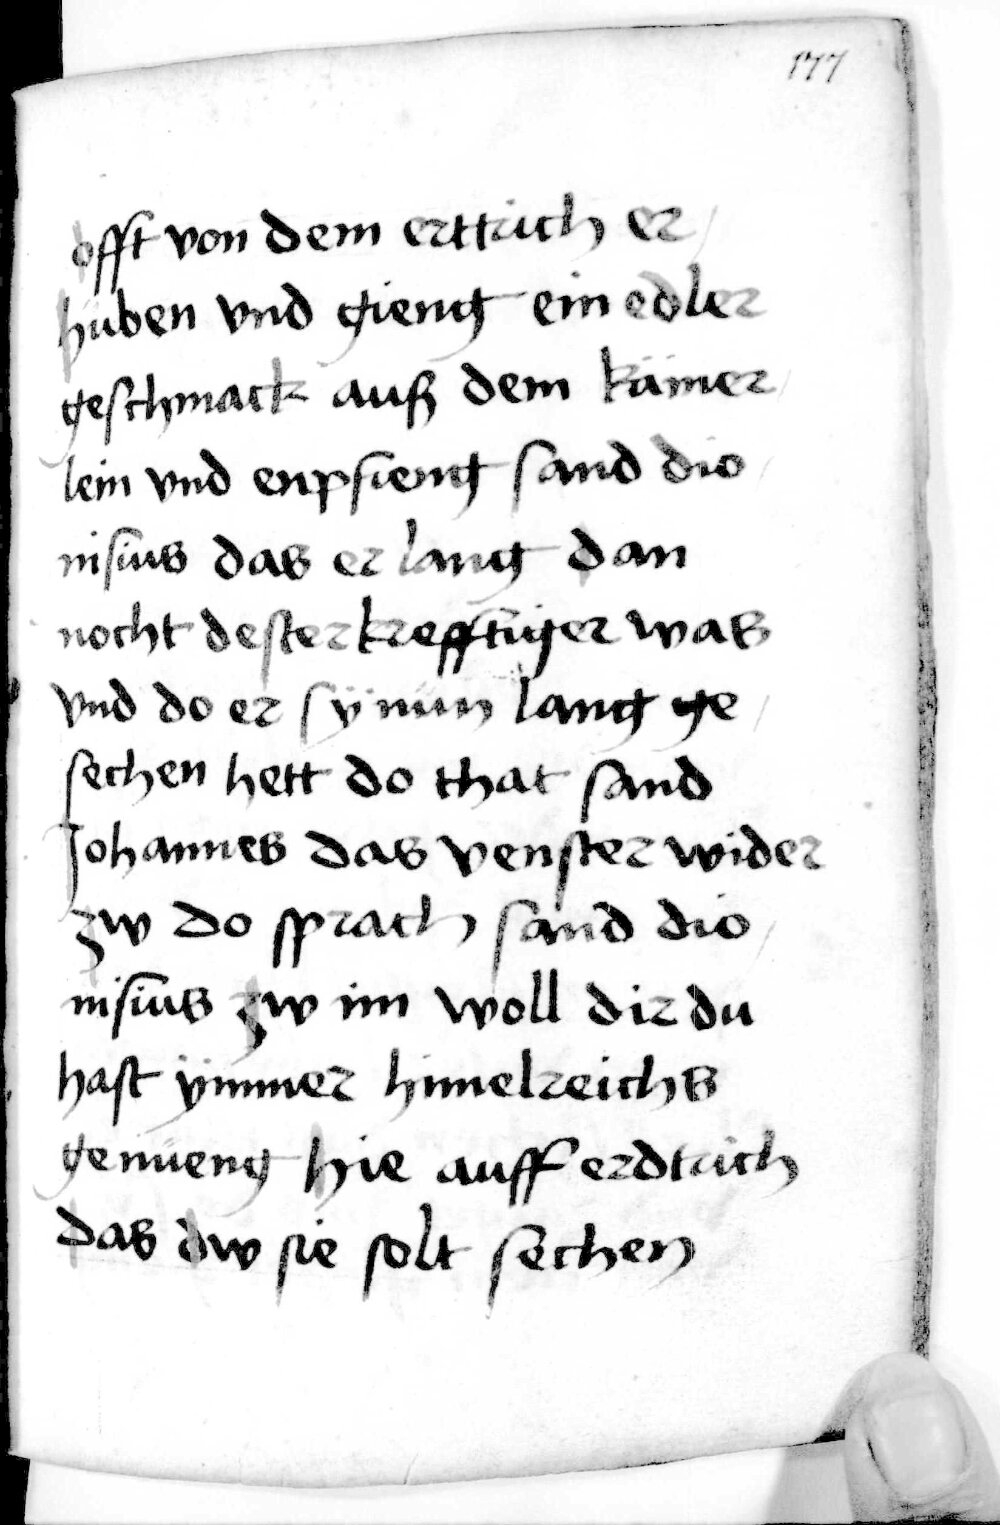 177
offt von dem erttrich er
hüben vnd gieng ein edler
geschmack auß dem kämer
lein vnd enpfieng sand dio
nisius das er lang dan
nocht dester krefftiger was
vnd do er sÿ nün lang ge
sechen hett do that sand
Johannes das venster wider
zw do sprach sand dio
nisius zw im woll dir du
hast ÿmmer himelreichs
genüeng hie auff erdtrich
das dw sie solt sechen